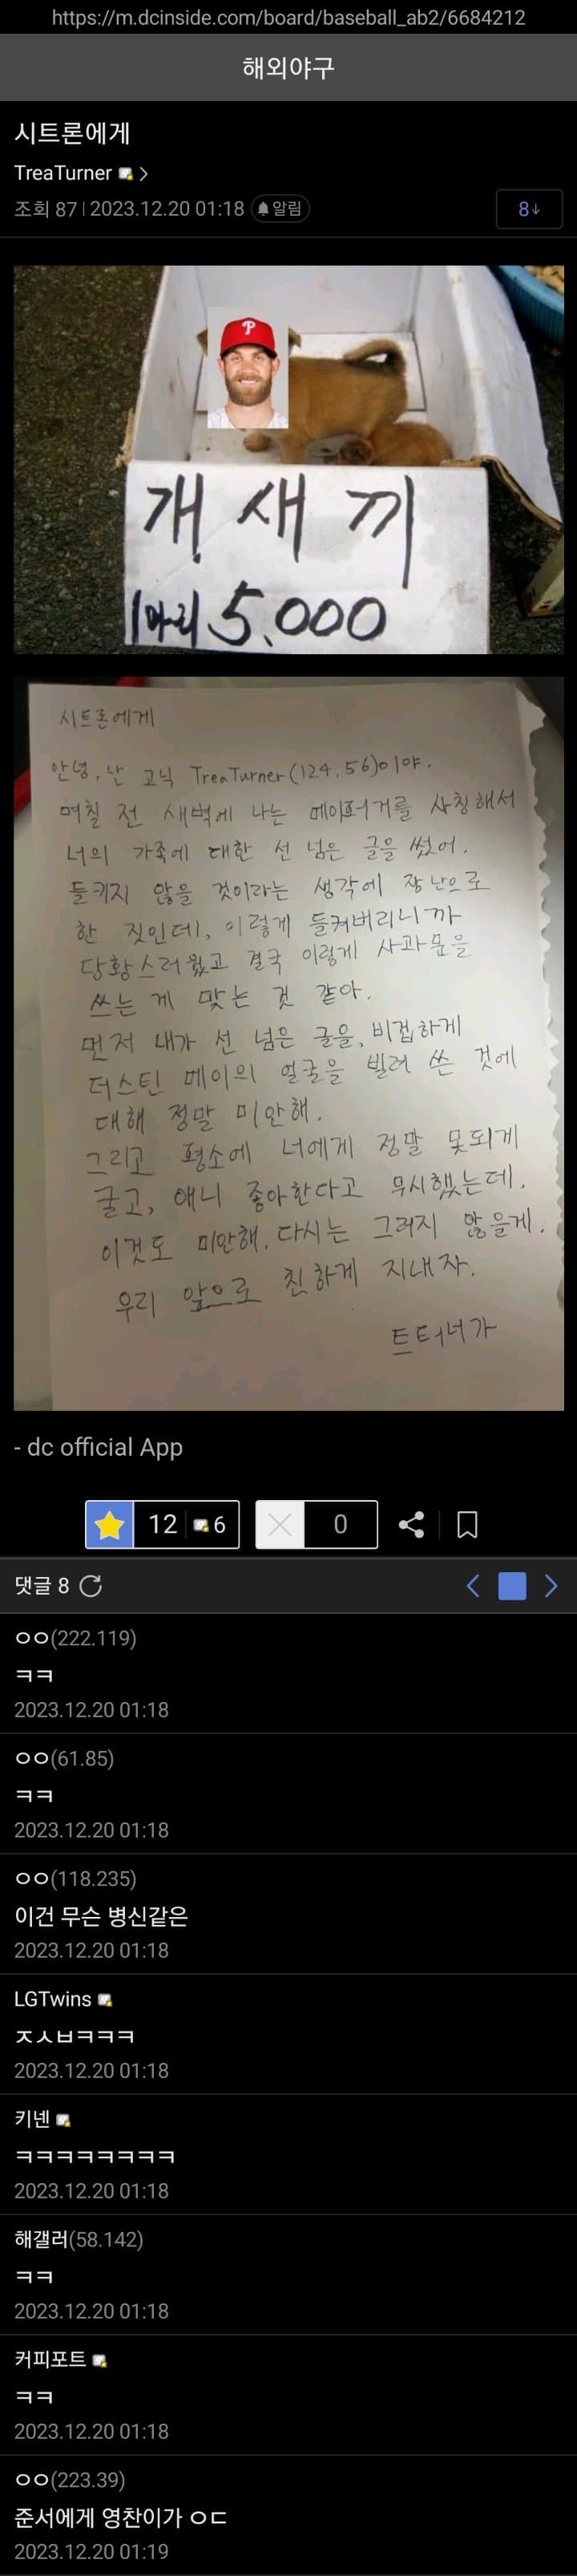 https://m.dcinside.com/board/baseball_ab2/6684212
해외야구
시트론에게
TreaTurner
조회 87 | 2023.12.20 01:18 알림
8↓
P
개새끼
1마리 5,000
시트론에게
안녕, 난 고닉 TreaTurner(124.56)이야.
며칠 전 새벽에 나는 메이퍼거를 사칭해서
너의 가족에 대한 선 넘은 글을 썼어.
들키지 않을 것이라는 생각에 장난으로
한 짓인데, 이렇게 들켜버리니까
당황스러웠고 결국 이렇게 사과문을
쓰는 게 맞는 것 같아.
먼저 내가 선 넘은 글을, 비겁하게
더스틴 메이의 얼굴을 빌려 쓴 것에
대해 정말 미안해.
그리고 평소에 너에게 정말 못되게
굴고, 애니 좋아한다고 무시했는데,
이것도 미안해. 다시는 그러지 않을게.
우리 앞으로 친하게 지내자.
트터너가
- dc official App
12 6 0
댓글 8
ㅇㅇ(222.119)
ㅋㅋ
2023.12.20 01:18
ㅇㅇ(61.85)
ㅋㅋ
2023.12.20 01:18
ㅇㅇ(118.235)
이건 무슨 병신같은
2023.12.20 01:18
LGTwins
ㅈㅅㅂㅋㅋㅋ
2023.12.20 01:18
키넨
ㅋㅋㅋㅋㅋㅋㅋㅋ
2023.12.20 01:18
해갤러(58.142)
ㅋㅋ
2023.12.20 01:18
커피포트
ㅋㅋ
2023.12.20 01:18
ㅇㅇ(223.39)
준서에게 영찬이가 ㅇㄷ
2023.12.20 01:19